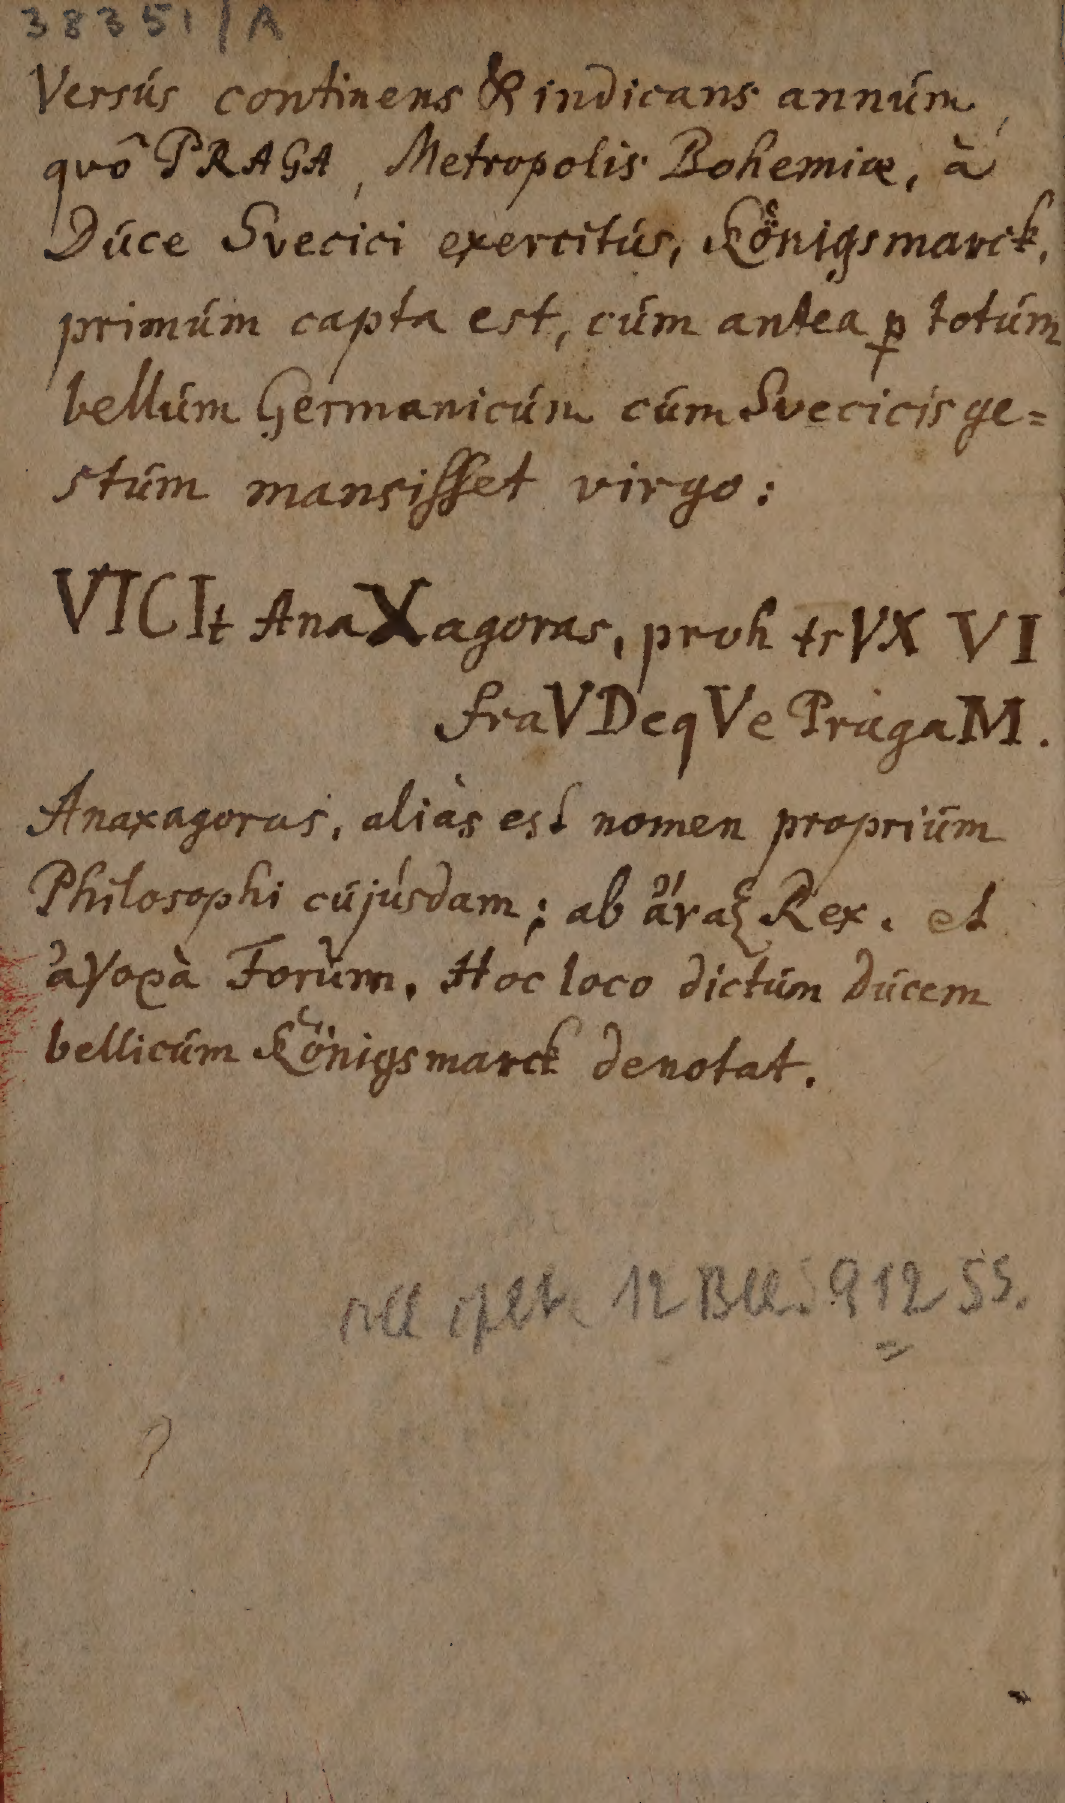 38351/A
Versús continens & indicans annúm,
quô PRAGA, Metropolis Bohemiæ, à
Dúce Svecici exercitús, Königsmarck,
primúm capta est, cúm antea ꝑ totúm
bellúm Germanicúm cúm Svecicis ge=
stúm mansisset virgo:
VICIt AnaXagoras, proh trVX VI
fraVDeqVe PragaM.
Anaxagoras, aliàs est nomen propriúm
Philosophi cújúsdam; ab ἄναξ Rex. et
ἀγορὰ Forúm. Hoc loco dictúm dúcem
bellicúm Königsmarck denotat.
12 Bll. 912 SS.